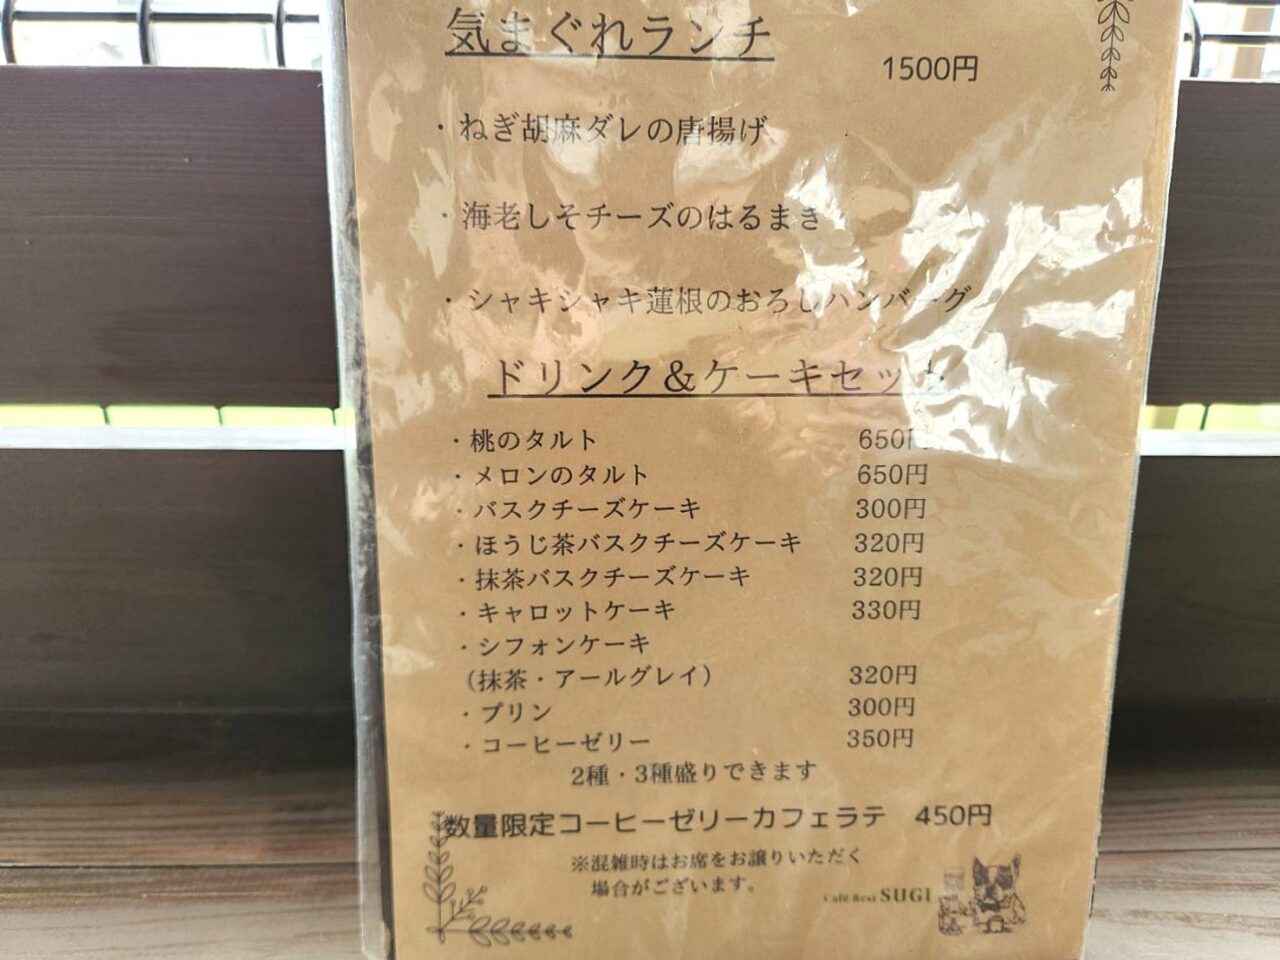 気まぐれランチ
1500円
・ねぎ胡麻ダレの唐揚げ
・海老しそチーズのはるまき
・シャキシャキ蓮根のおろしハンバーグ
ドリンク＆ケーキセット
・桃のタルト 650円
・メロンのタルト 650円
・バスクチーズケーキ 300円
・ほうじ茶バスクチーズケーキ 320円
・抹茶バスクチーズケーキ 320円
・キャロットケーキ 330円
・シフォンケーキ
（抹茶・アールグレイ） 320円
・プリン 300円
・コーヒーゼリー 350円
2種・3種盛りできます
数量限定コーヒーゼリーカフェラテ 450円
※混雑時はお席をお譲りいただく
場合がございます。
Café Rest SUGI